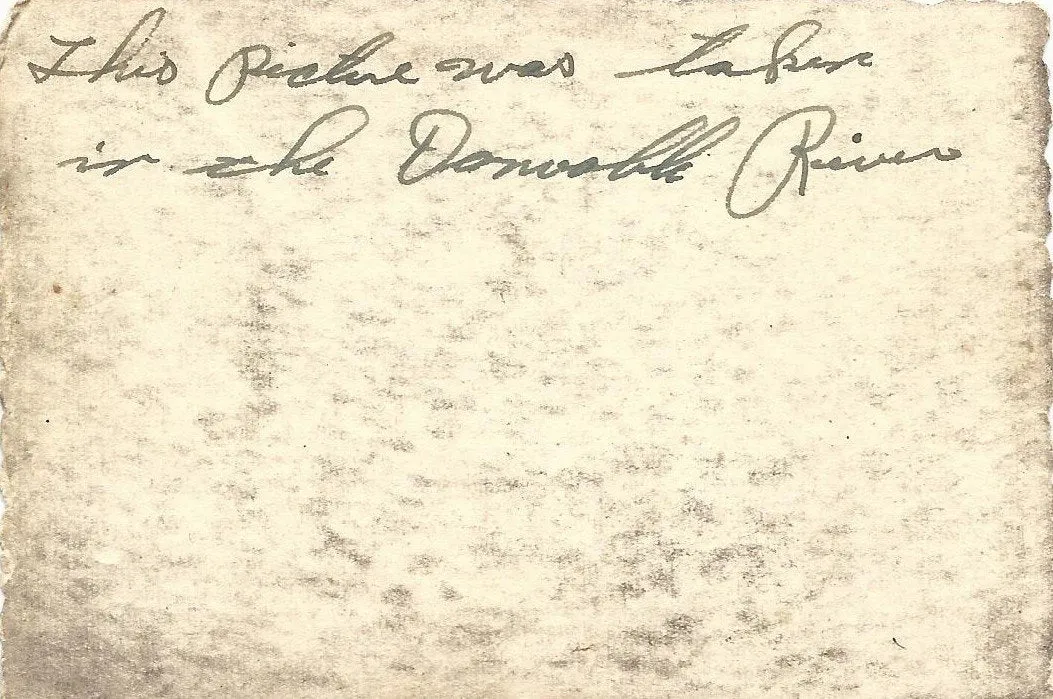 This picture was taken
in the Donvable River